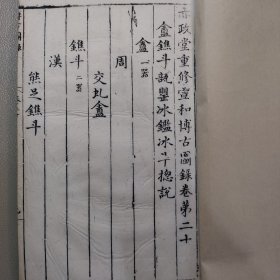 亦政堂重修宣和博古圖錄卷第二十
盦鐎斗瓿罌冰鑑冰斗總說
盦一器
周
交虬盦
鐎斗二器
漢
熊足鐎斗